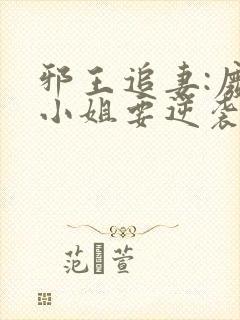 邪王追妻:废
小姐要逆袭
范萱